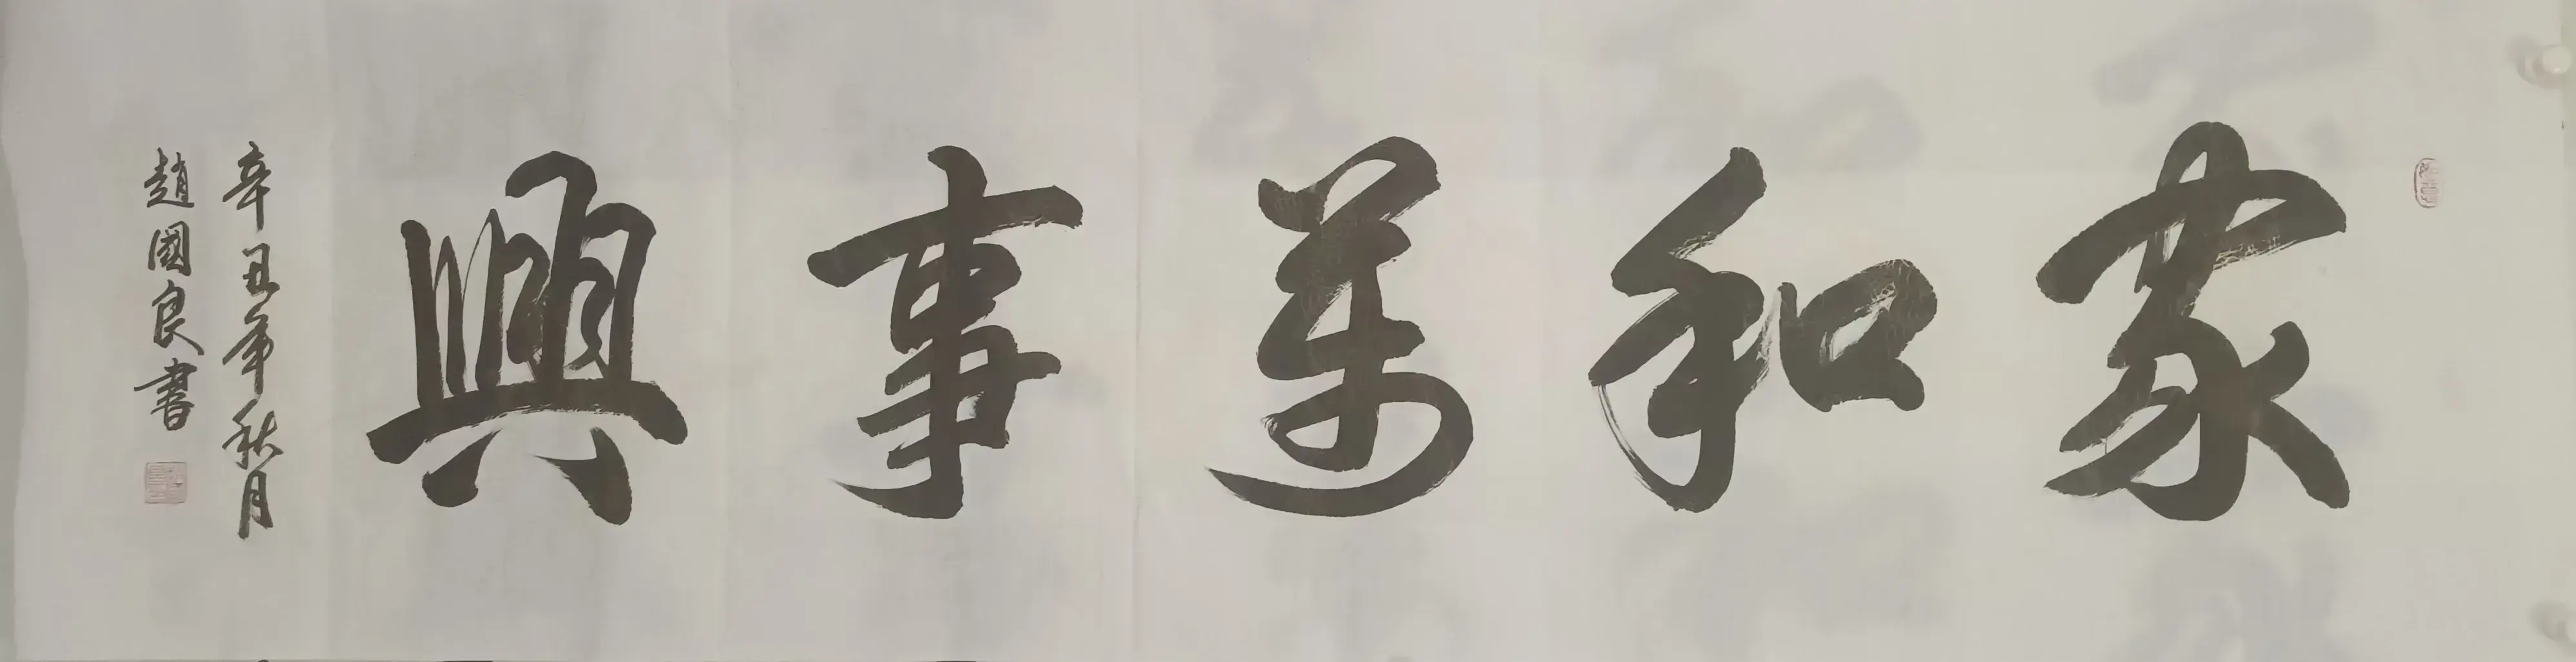 家和萬事興
辛丑年秋月
趙國良書